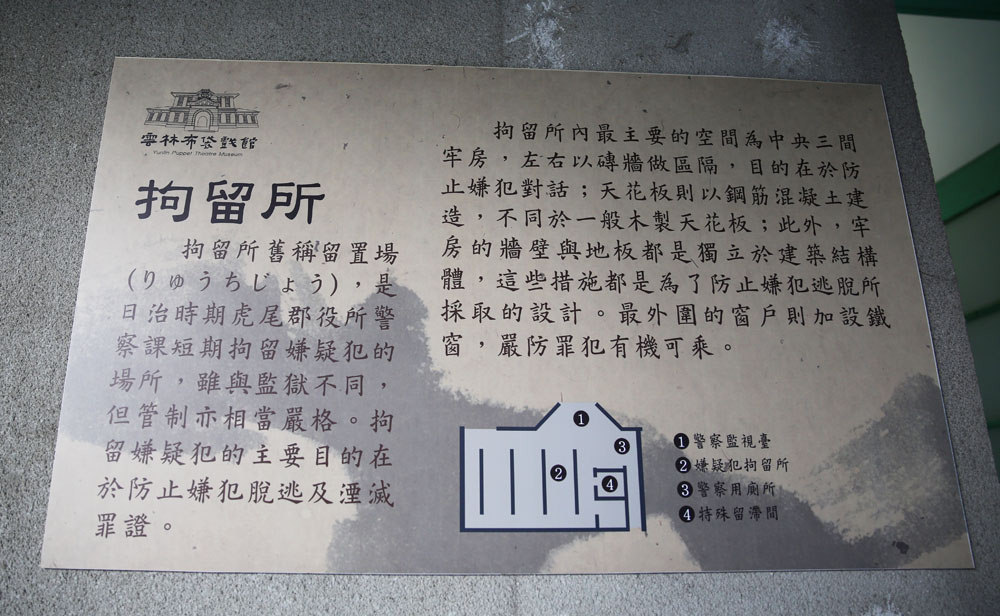 雲林布袋戲館
Yunlin Puppet Theatre Museum
拘留所
拘留所舊稱留置場
(りゅうちじょう)，是
日治時期虎尾郡役所警
察課短期拘留嫌疑犯的
場所，雖與監獄不同，
但管制亦相當嚴格。拘
留嫌疑犯的主要目的在
於防止嫌犯脫逃及湮滅
罪證。
拘留所內最主要的空間為中央三間
牢房，左右以磚牆做區隔，目的在於防
止嫌犯對話；天花板則以鋼筋混凝土建
造，不同於一般木製天花板；此外，牢
房的牆壁與地板都是獨立於建築結構
體，這些措施都是為了防止嫌犯逃脫所
採取的設計。最外圍的窗戶則加設鐵
窗，嚴防罪犯有機可乘。
1
3
2
4
1 警察監視臺
2 嫌疑犯拘留所
3 警察用廁所
4 特殊留滯間